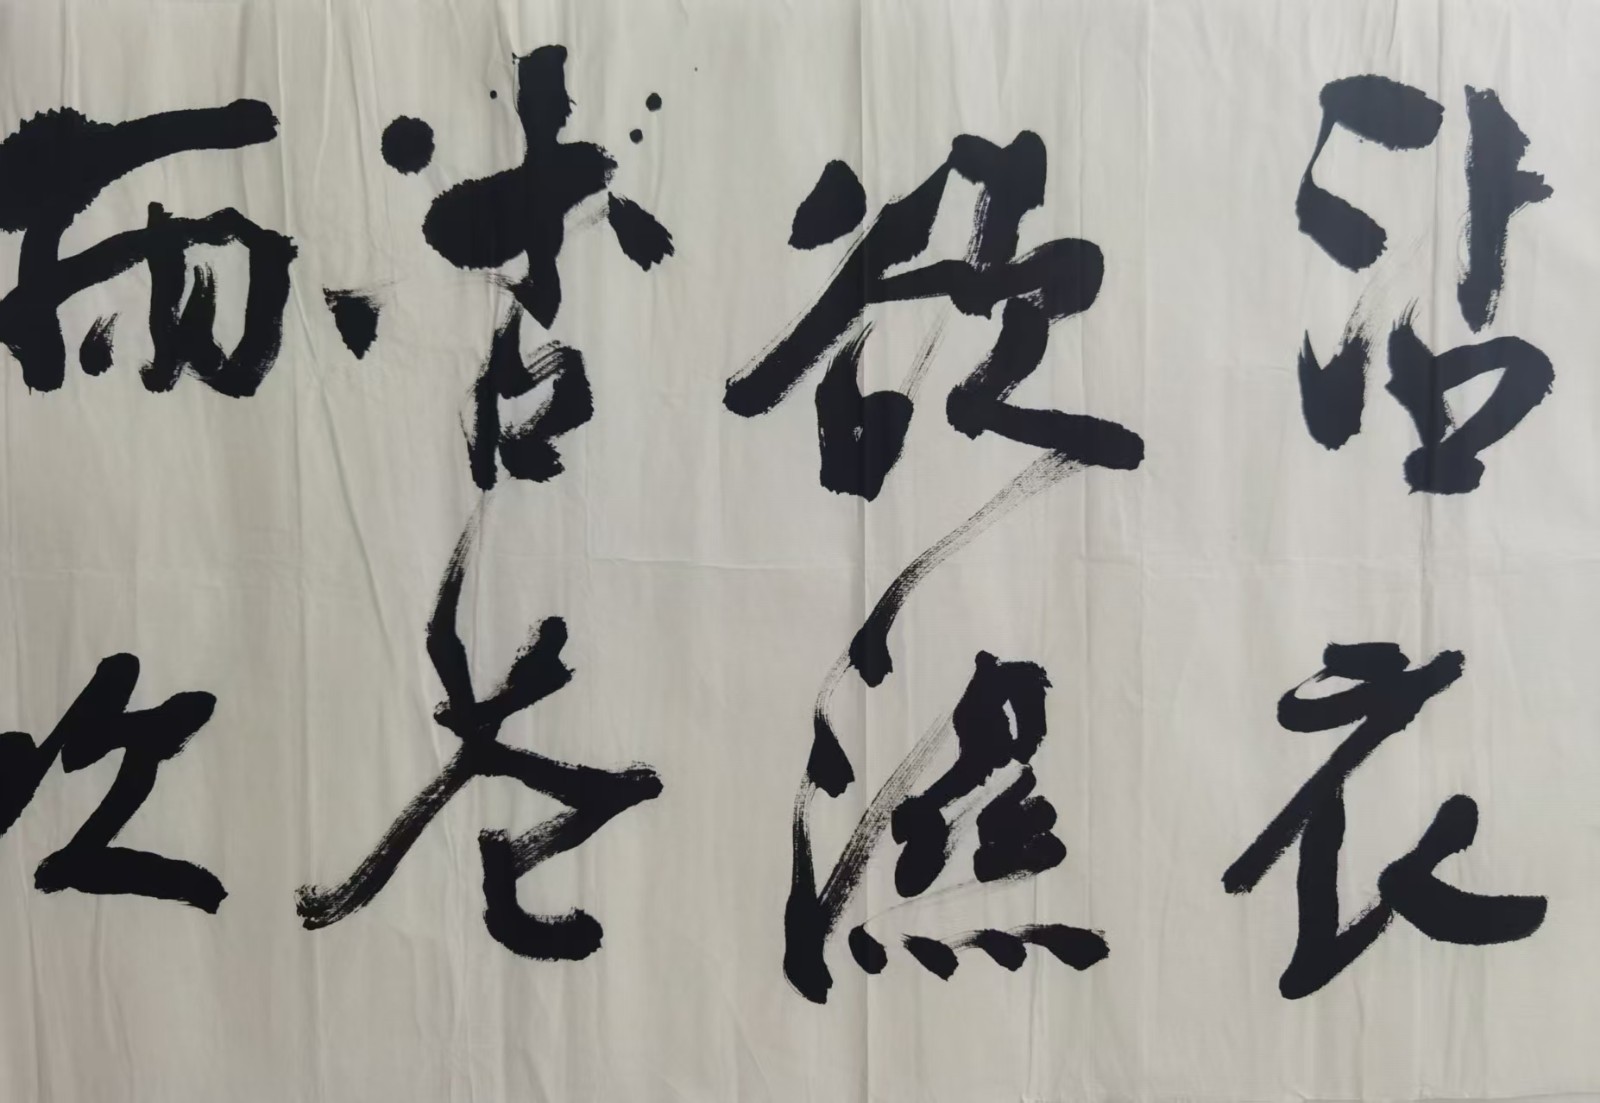 沾衣
欲濕
杏花
雨吹